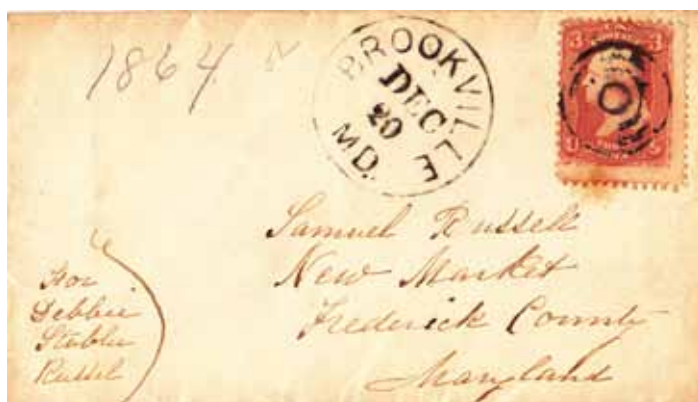 1864
BROOKVILLE
DEC
20
MD.
3 3
U S
Samuel Russell
New Market
Frederick County
Maryland
For
Debbie
Stabler
Russel